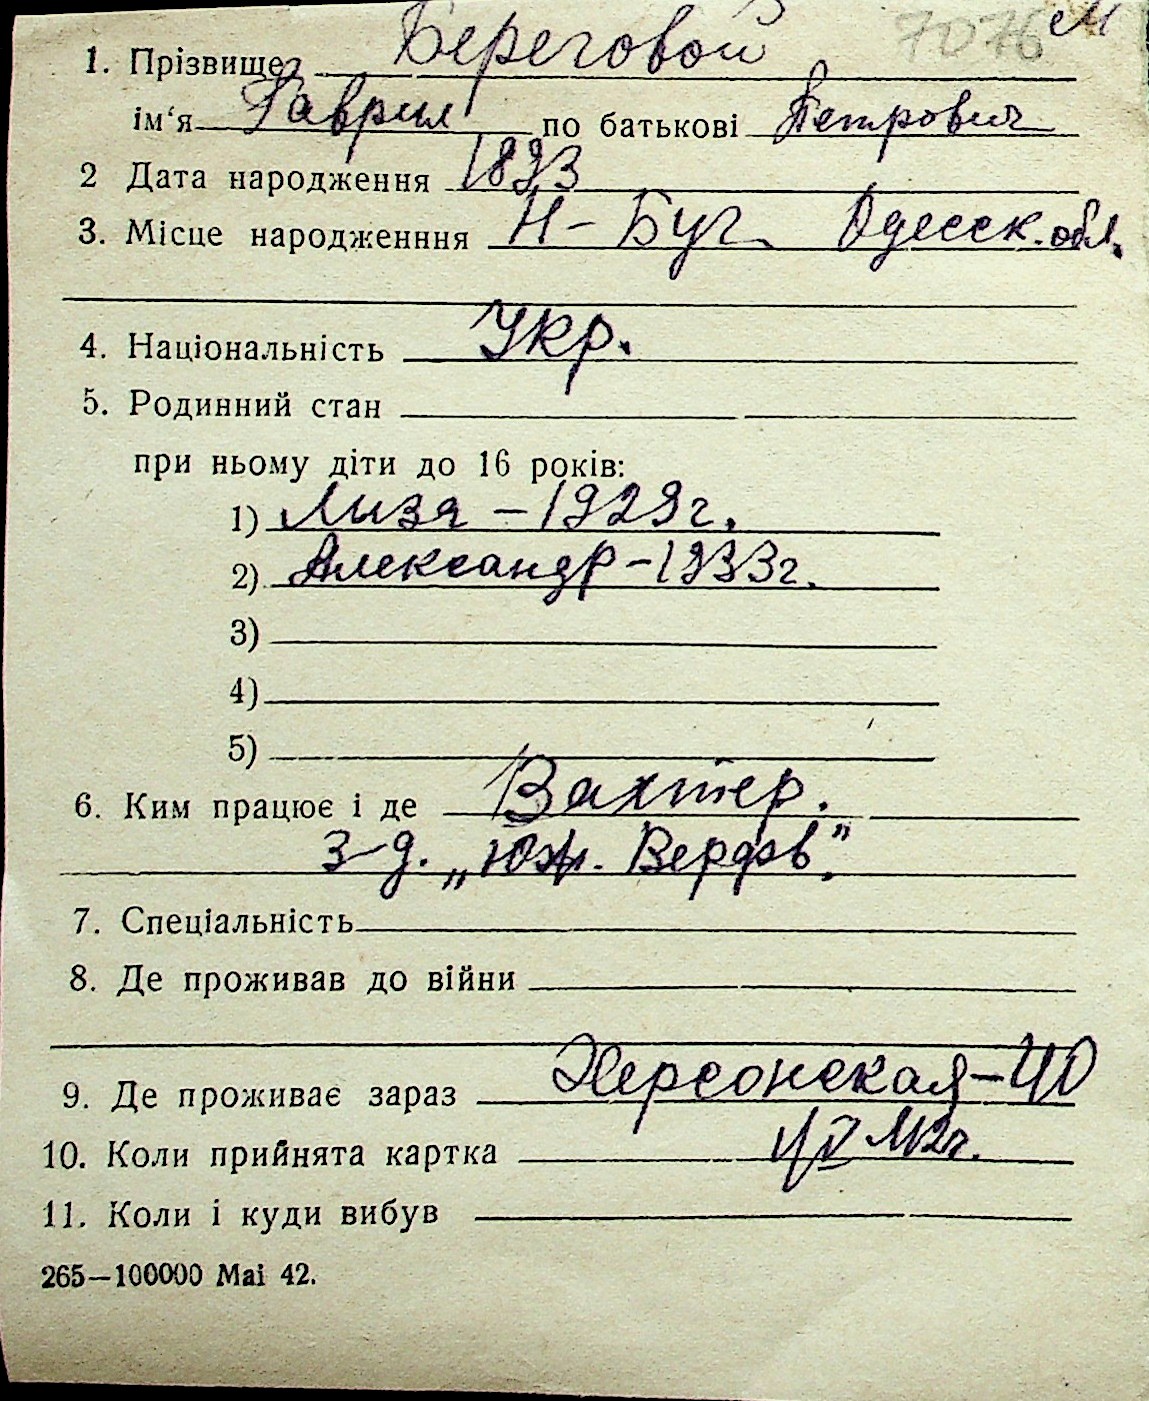 7076 м
1. Прізвище Береговой
ім‘я Гаврил по батькові Петрович
2 Дата народження 1893
3. Місце народженння Н-Буг. Одесск. обл.
4. Національність Укр.
5. Родинний стан
при ньому діти до 16 років:
1) Лиза - 1929г.
2) Александр - 1933г.
3)
4)
5)
6. Ким працює і де Вахтер.
з-д. „Юж. Верфь."
7. Спеціальність
8. Де проживав до війни
9. Де проживає зараз Херсонская - 40
10. Коли прийнята картка
11. Коли і куди вибув
265—100000 Mai 42.